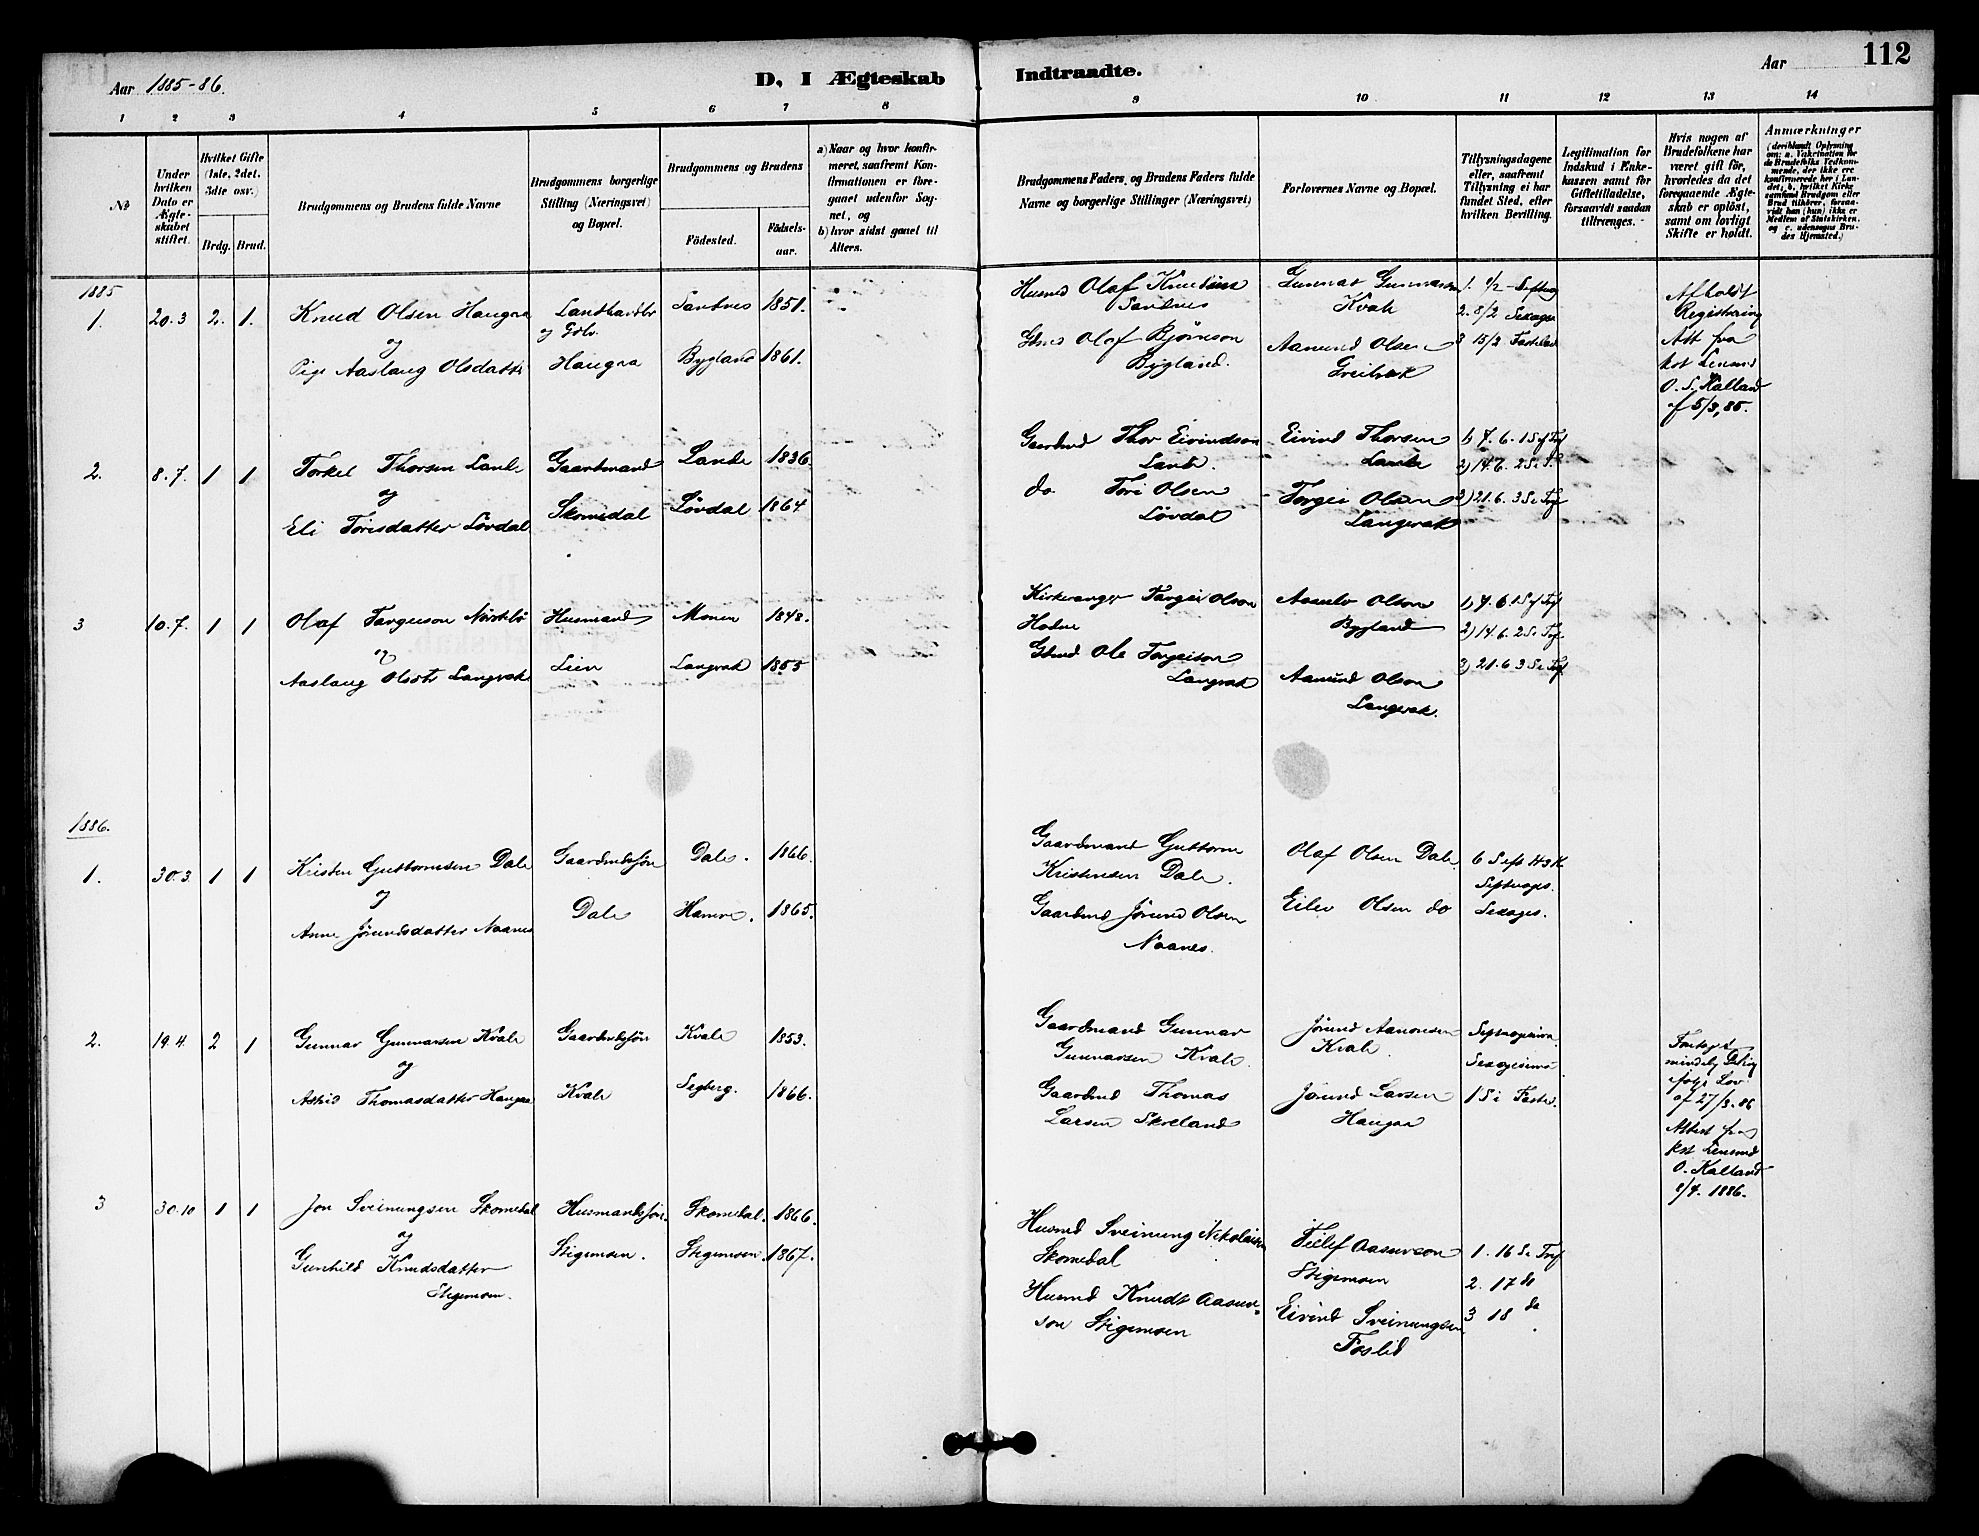 Aar 1885-86.
D. I Ægteskab Indtraadte.
Aar
112
1 2 3 4 5 6 7 8 9 10 11 12 13 14
No
Under hvilken Dato er Ægteskabet stiftet.
Hvilket Gifte (1ste, 2det, 3die osv.)
Brdg. Brud.
Brudgommens og Brudens fulde Navne
Brudgommens borgerlige Stilling (Næringsvei) og Bopæl.
Brudgommens og Brudens
Fødested.
Fødsels-aar.
a) Naar og hvor konfirmeret, saafremt Konfirmationen er foregaaet udenfor Sognet, og
b) hvor sidst gaaet til Alters.
Brudgommens Faders og Brudens Faders fulde Navne og borgerlige Stillinger (Næringsvei)
Forlovernes Navne og Bopæl.
Tillysningsdagene eller, saafremt Tillysning ei har fundet Sted, efter hvilken Bevilling.
Legitimation for Indskud i Enkekassen samt for Giftetilladelse, forsaavidt saadan tiltrænges.
Hvis nogen af Brudefolkene har været gift før, hvorledes da det foregaaende Ægteskab er opløst, samt om lovligt Skifte er holdt.
Anmærkninger
1885
1. 20.3 2. 1. Knud Olsen Haugaa Landhandler Sandnes 1851.
og Gbr.
Pige Aaslaug Olsdatter Haugaa Bygland 1861.
Husmd Olaf Knudsen Sandnes
Gbmd Olaf Bjørnson Bygland.
Gunnar Gunnarson Kvale
Aamund Olsen
1. 1/2 Septuag
2. 8/2 Sexages
3 15/2 Fastel
Afholdt Registrering
Att fra
kst Lensmd
O. S. Kalland
af 5/3,85.
2. 8.7. 1 1 Torkel Thorsen Lande Gaardmand Lande 1836.
og
Eli Torisdatter Løvdal Skomedal Løvdal 1864
Gaardmd Thor Eivindson Lande.
do. Tori Olsen Løvdal
Eivind Thorsen Lande
Torgei Olsen Langevak
1) 7.6. 1 S ef Tref
2) 14.6. 2 S e T.
3) 21.6. 3 S e Tref
3 10.7. 1 1 Olaf Targeison Husmand Monen 1848.
og
Aaslaug Olsdtr Langvak Lien Langvak 1855
Kirkesanger Targei Olson
Gbmd. Ole Torgeison Langvak
Aasulv Olson Bygland
Aamund Olson Langevak.
1) 7.6. 1 S ef Tref
2) 14.6. 2 S e Tref.
3) 21.6 3 S e Tref
1886.
1. 30.3. 1 1 Kristen Guttormsen Dale Gaardmdssøn Dale. 1866.
og
Anne Jørundsdatter Naanes Dale Hamre. 1865.
Gaardmand Guttorm Kristensen Dale.
Gaardmd Jørund Olsen Naanes.
Olaf Olsen Dale
Eilev Olsen do
Septuages.
Sexages.
2. 19.4. 2 1 Gunnar Gunnarsen Kvale Gaardmdssøn Kvale 1853.
og
Astrid Thomasdatter Haugaa Kvale Segberg. 1866.
Gaardmand Gunnar Gunnarsen Kvale.
Gaardmd Thomas Larsen Skreland
Jørund Aanonsen Kvale.
Jørund Larsen Haugaa
Septuagesima
Sexagesima
1 S i Faste.
mindelig
følge Lov
af 27/3.86
Attest fra
kst. Lensmd
O. Kalland
8/4. 1886.
3 30.10 1 1 Jon Sveinungsen Skomedal Husmandssøn. Skomedal. 1866.
og
Gunhild Knudsdatter Stigemoen. Stigemoen. Stigemoen. 1867.
Husmd Sveinung Nikolaisen Skomedal
Husmd Knudt Aasulvson Stigemoen
Tellef Aasulvson Stigemoen
Eivind Sveinungsen Foslid
1. 16 S e Tref
2. 17 do
3 18 do